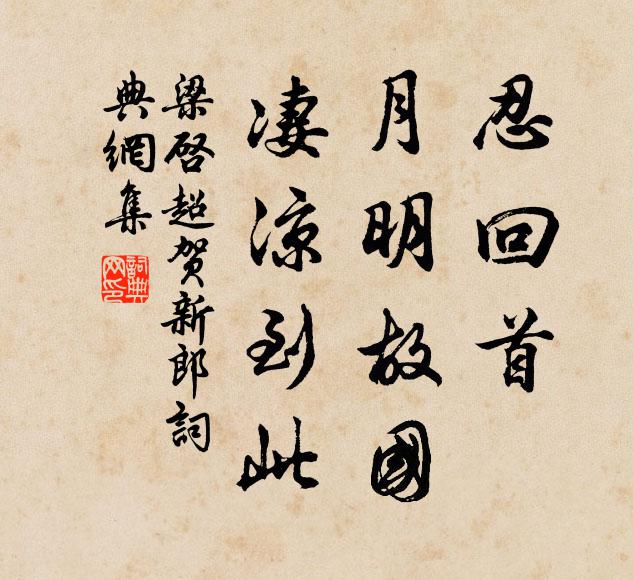 忍回首
月明故國
淒涼到此
梁啓超賀新郎詞
典網集
詞典網印